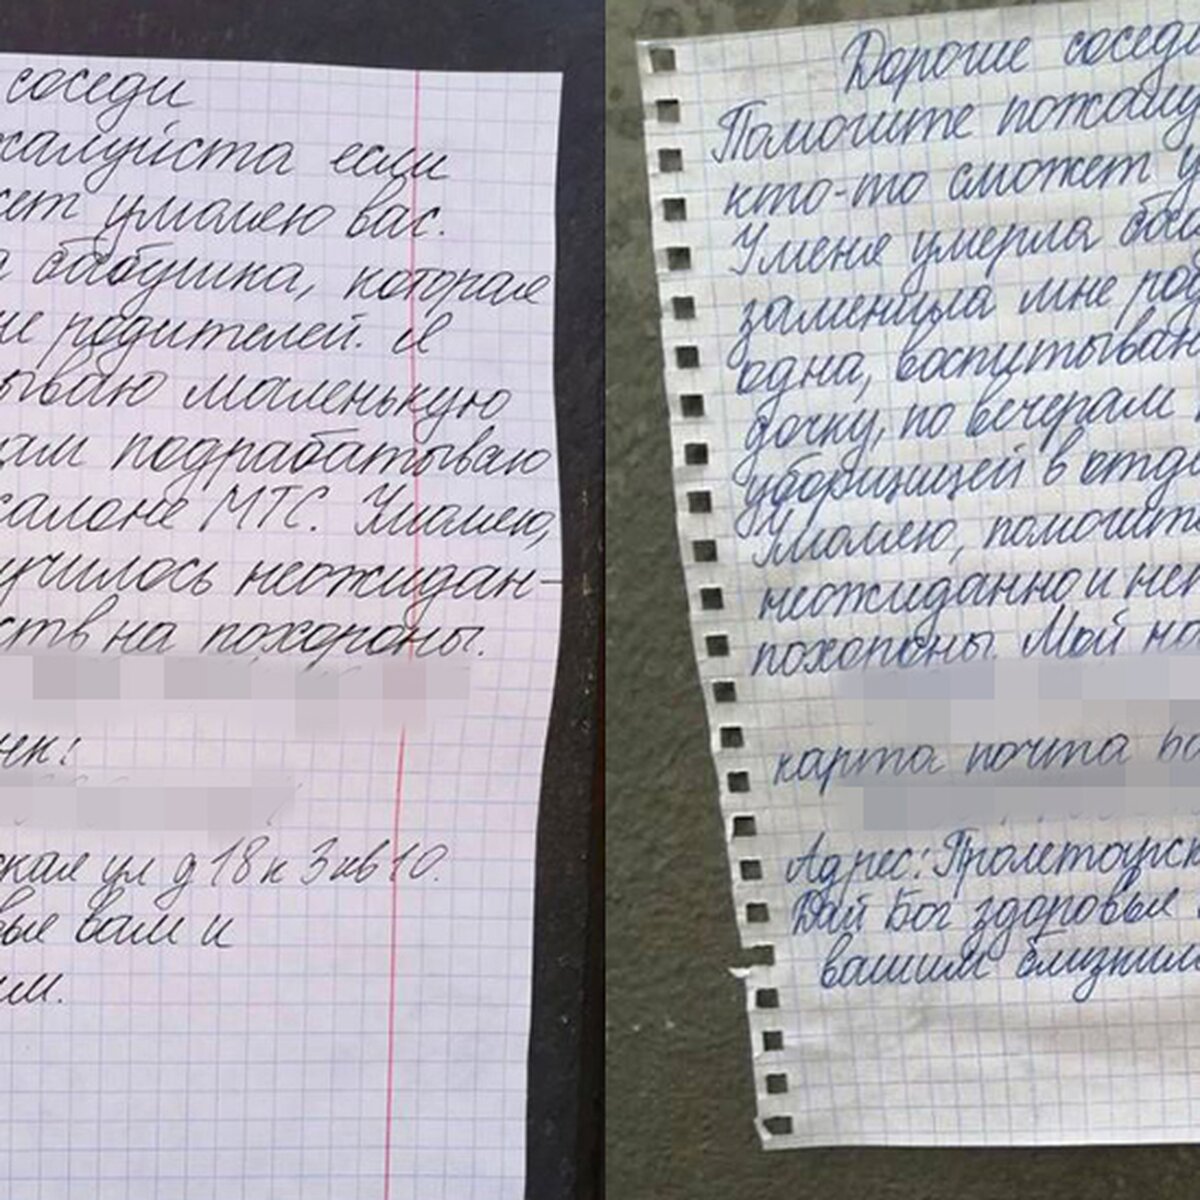 соседи
жалуйста если
жет умоляю вас.
а бабушка, которая
не родителей. Я
ываю маленькую
рам подрабатываю
салоне МТС. Умоляю,
училось неожидан-
ств на похороны.
нк:
ская ул д 18 к 3 кв 10.
вье вам и
им.
Дорогие соседи
Помогите пожалу
кто-то сможет у
У меня умерла баб
заменила мне род
одна, воспитываю
дочку, по вечерам
уборщицей в отде
Умоляю, помогите
неожиданно и нет
похороны. Мой но
карта почта ба
Адрес: Пролетарск
Дай Бог здоровье
вашим близким